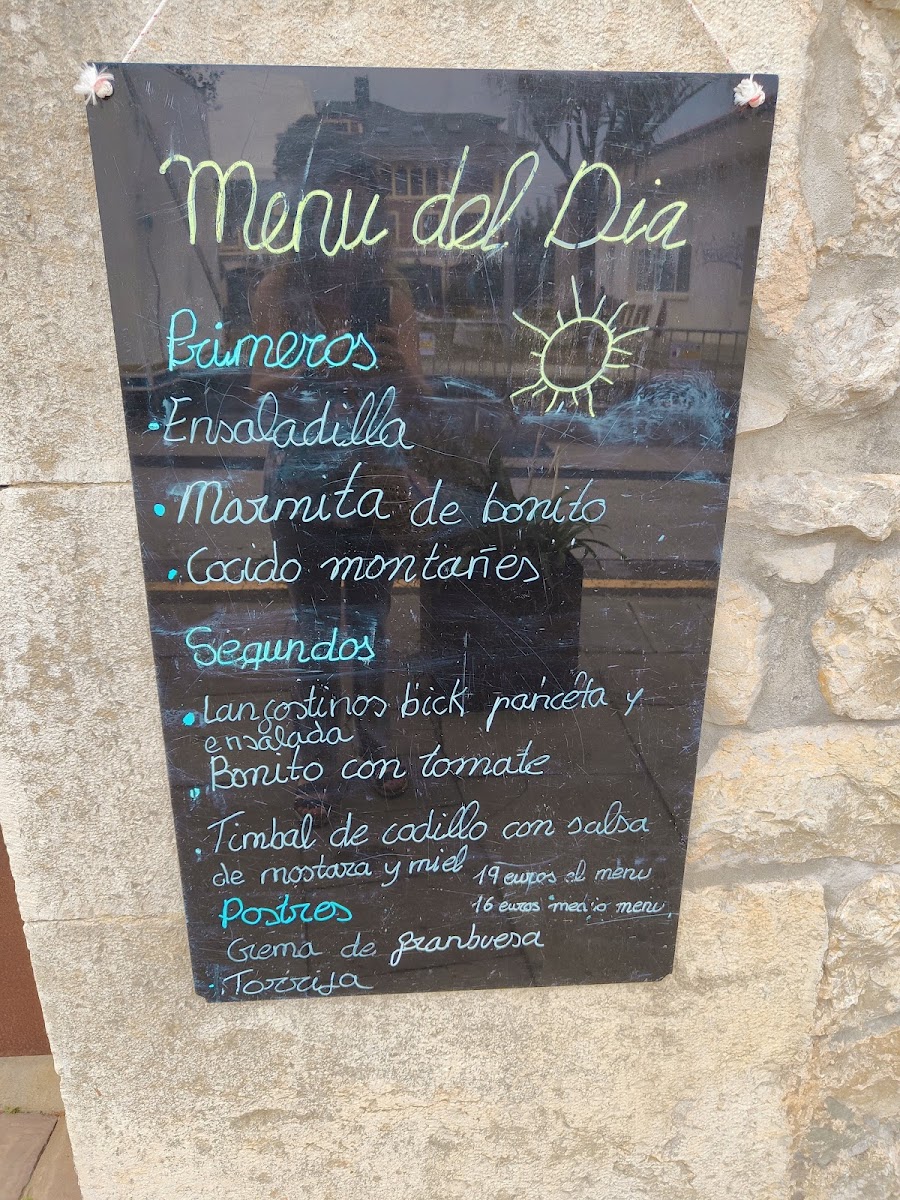 Menu del Dia
Primeros
• Ensaladilla
• Marmita de bonito
• Cocido montañes
Segundos
• Langostinos bick panceta y
ensalada
• Bonito con tomate
• Timbal de codillo con salsa
de mostaza y miel
19 euros el menu
16 euros medio menu
Postres
Crema de frambuesa
• Torrija